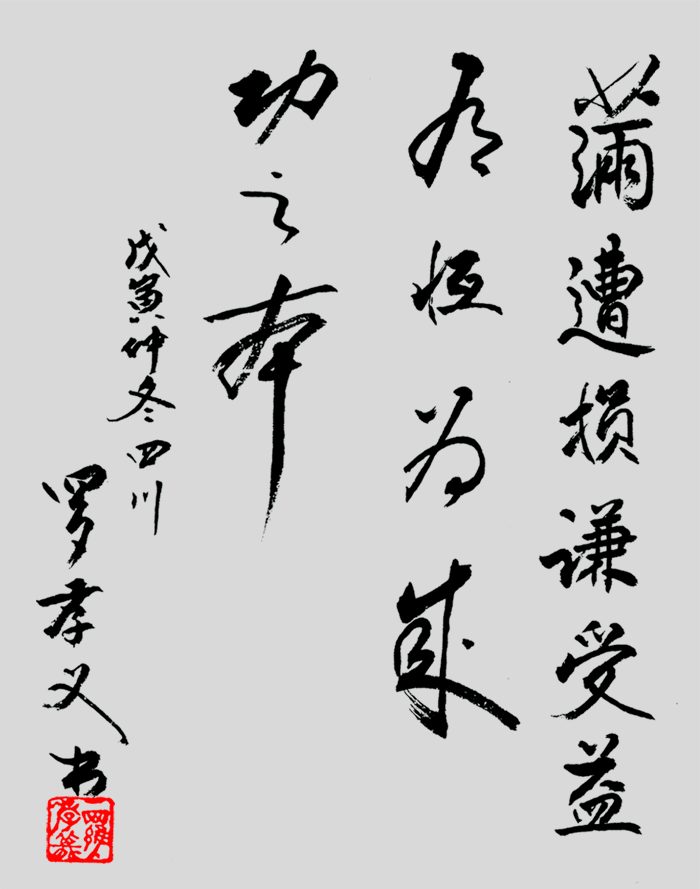 满遭损谦受益
有恒为成
功之本
戊寅仲冬四川
罗孝义书
羅孝義